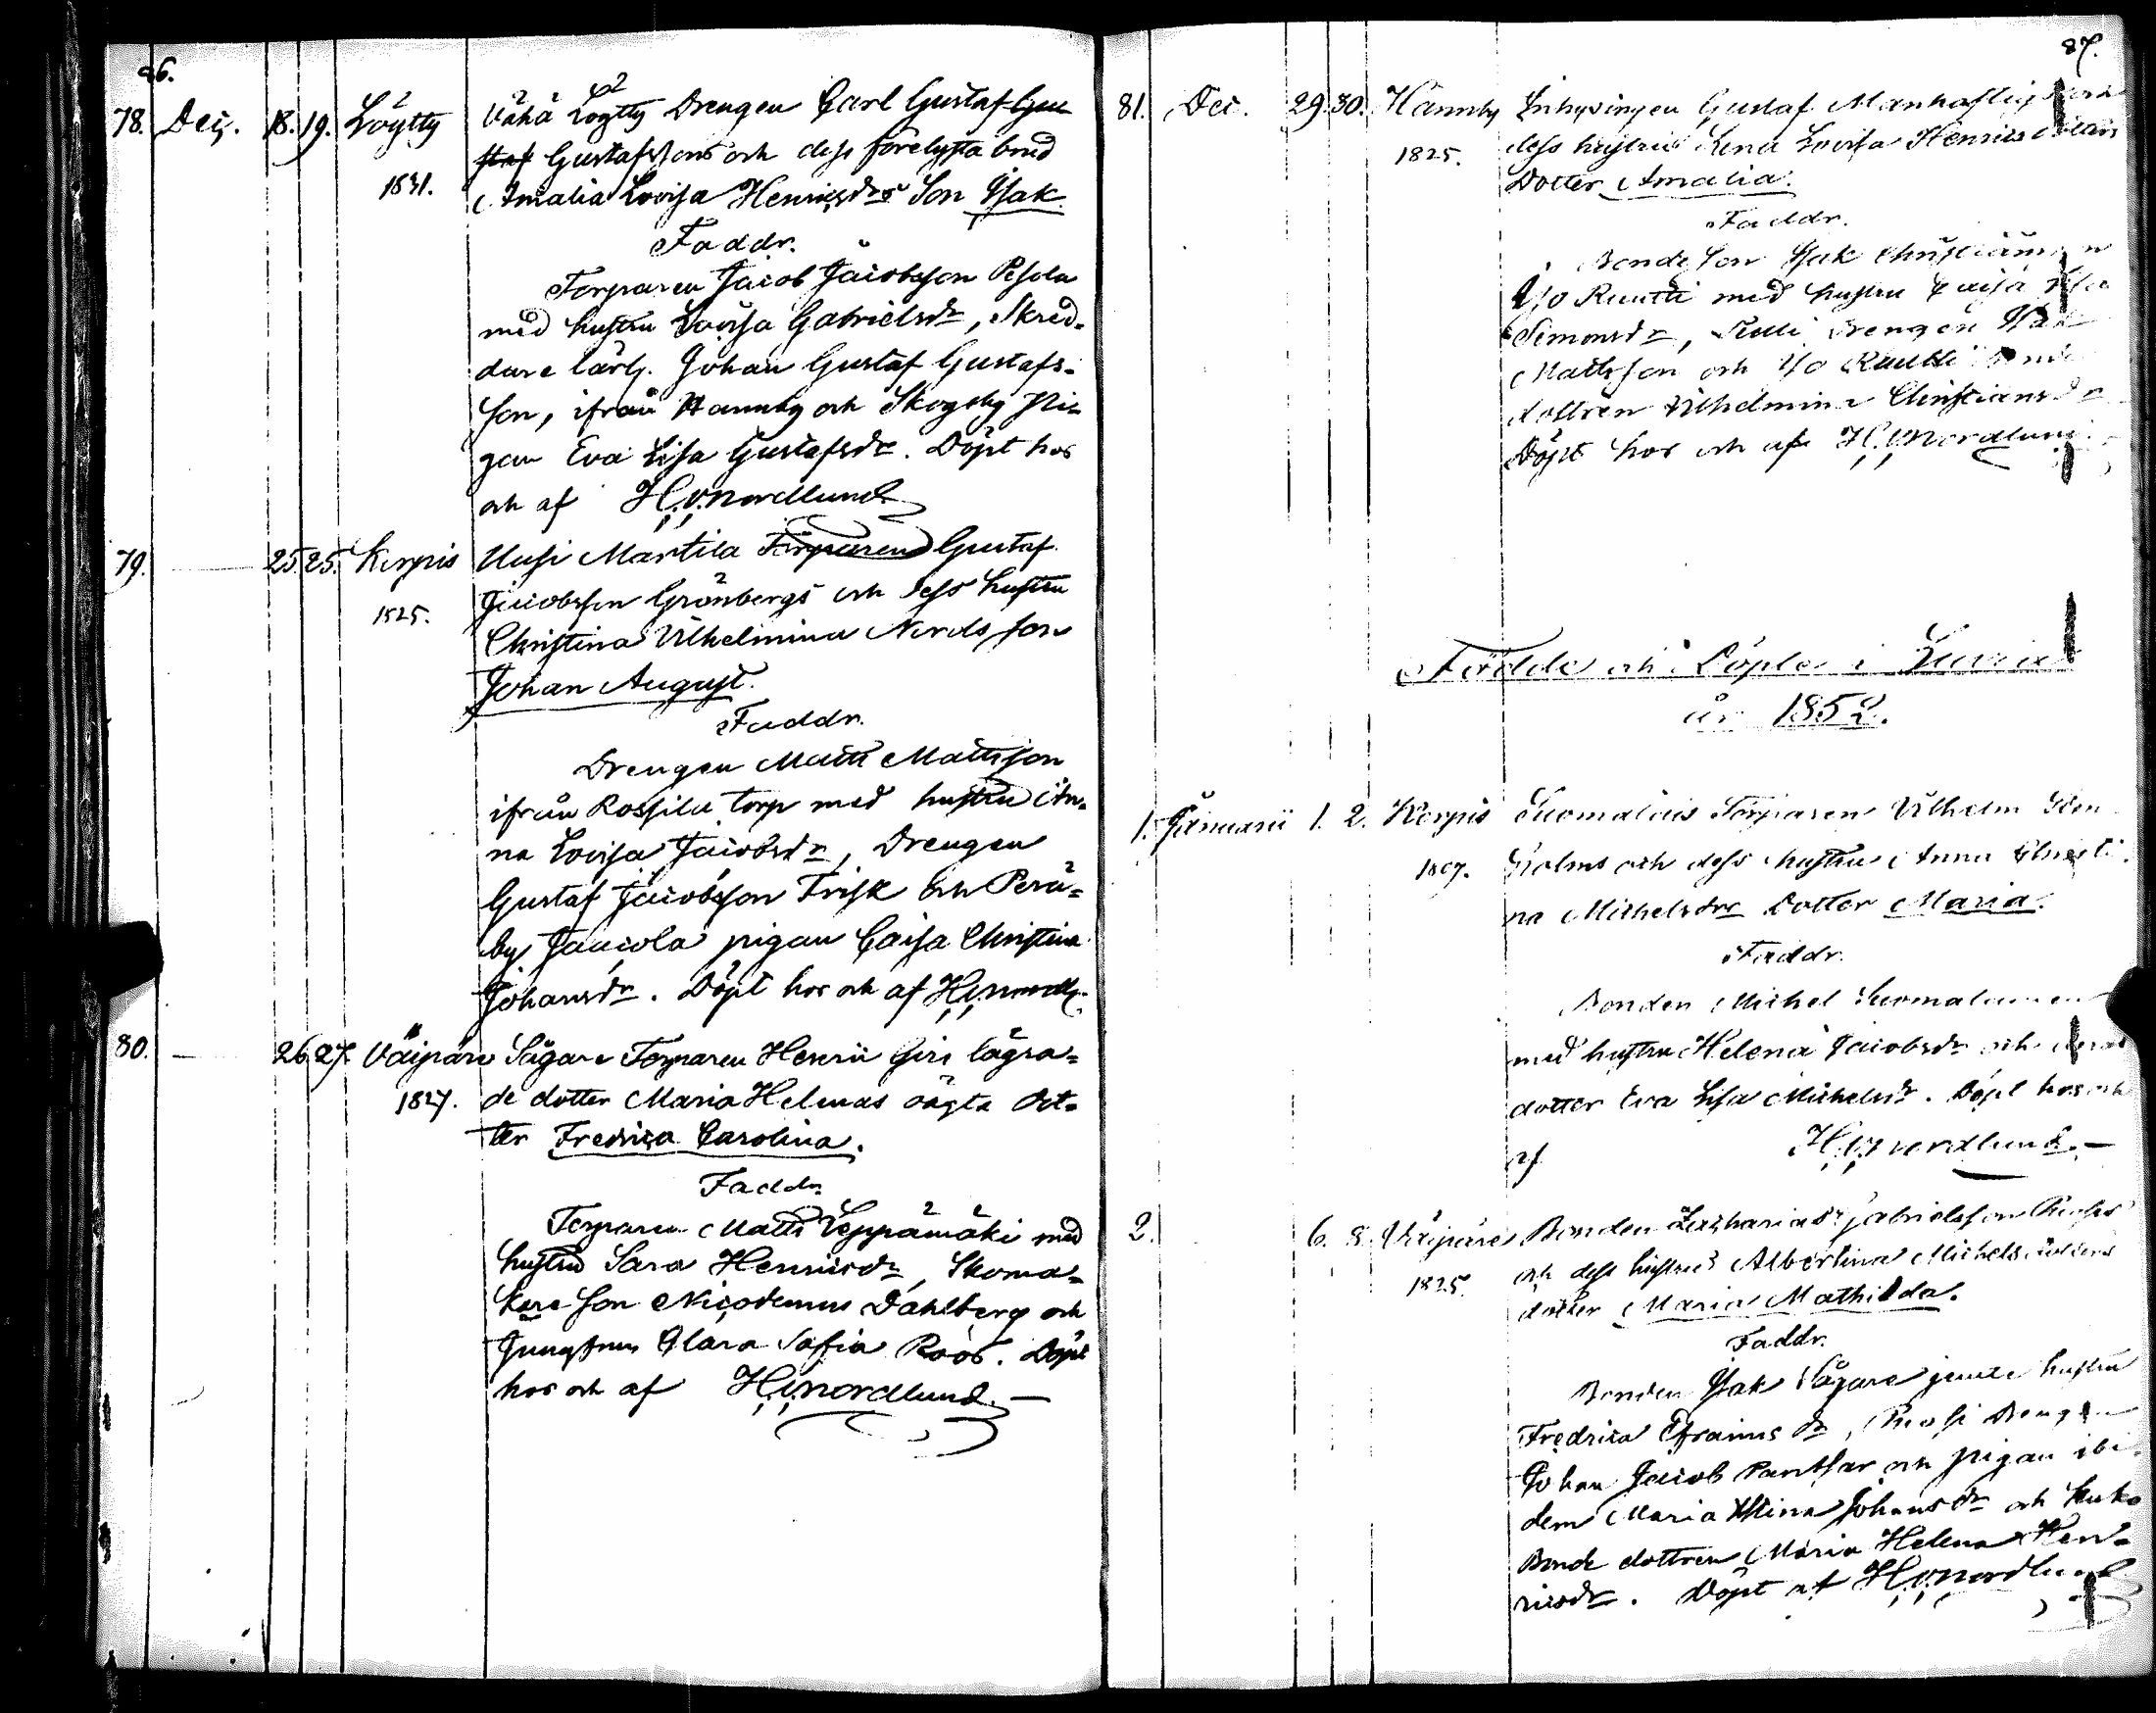 86.
78. Dec. 18. 19. Löytty Vähä Löytty Drengen Carl Gustaf Gu
staf Gustafssons och dess förelysta brud
1831. Amalia Lovisa Henricsdrs Son Isak.
Faddr.
Torparen Jacob Jacobsson Pesola
med hustru Lovisa Gabrielsdr, Skred-
dare lärl. Johan Gustaf Gustafs-
son, ifrån Hannby och Skogsby Pi-
gan Eva Lisa Gustafsdr. Döpt hos
och af H.V.Nordlund
79. 25. 25. Korpis Uusi Martila Torparen Gustaf
Jacobsson Grönbergs och dess hustru
1825.
Christina Vilhelmina Nords son
Johan August.
Faddr.
Drengen Matts Mattsson
ifrån Rossila torp med hustru An-
na Lovisa Jacobsdr, Drengen
Gustaf Jacobsson Frisk och Perä-
by Jaacola pigan Caisa Christina
Johansdr. Döpt hos och af H.V.Nordl.
80. 26. 27. Väipäre Sågare Torparen Henric Giri lägra-
1827. de dotter Maria Helenas oägta Dot-
ter Fredrica Carolina.
Faddr
Torparen Matts Leppämäki med
hustru Sara Henricsdr, Skoma-
kare son Nicodemus Dahlberg och
Jungfrun Clara Sofia Roos. Döpt
hos och af H.V.Nordlund.
87.
81. Dec. 29. 30. Hannby Inhysingen Gustaf Manhaftig
1825. dess hustrus Lena Lovisa Henrics
Dotter Amalia.
Faddr.
Bonde Son Isak
Y/o Ruutti med hustru Caisa
Simonsdr, Drengen
Mattsson och Y/o Ruutti
dottren Vilhelmina Christiansdr
Döpt hos och af H.V.Nordlund
Födde och Döpte i Luvia
år 1852.
1. Januarii 1. 2. Korpis Suomalais Torparen Vilhelm
1807. holms och dess hustru Anna Christi
na Michelsdrs Dotter Maria.
Faddr.
Bonden Michel Suomalainen
med hustru Helena Jacobsdr och
dotter Eva Lisa Michelsdr. Döpt hos och
af H.V.Nordlund.
2. 6. 8. Väipäre Bonden Zacharias Gabrielsson
och dess hustrus Albertina Michels dotters
1825.
dotter Maria Mathilda.
Faddr.
Bonden Isak Sågare jemte hustru
Fredrica Efraimsdr, Drengen
Johan Jacob Panthar och pigan ibi-
dem Maria Stina Johansdr och
Bonde dottren Maria Helena Hen-
ricsdr. Döpt af H.V.Nordlund